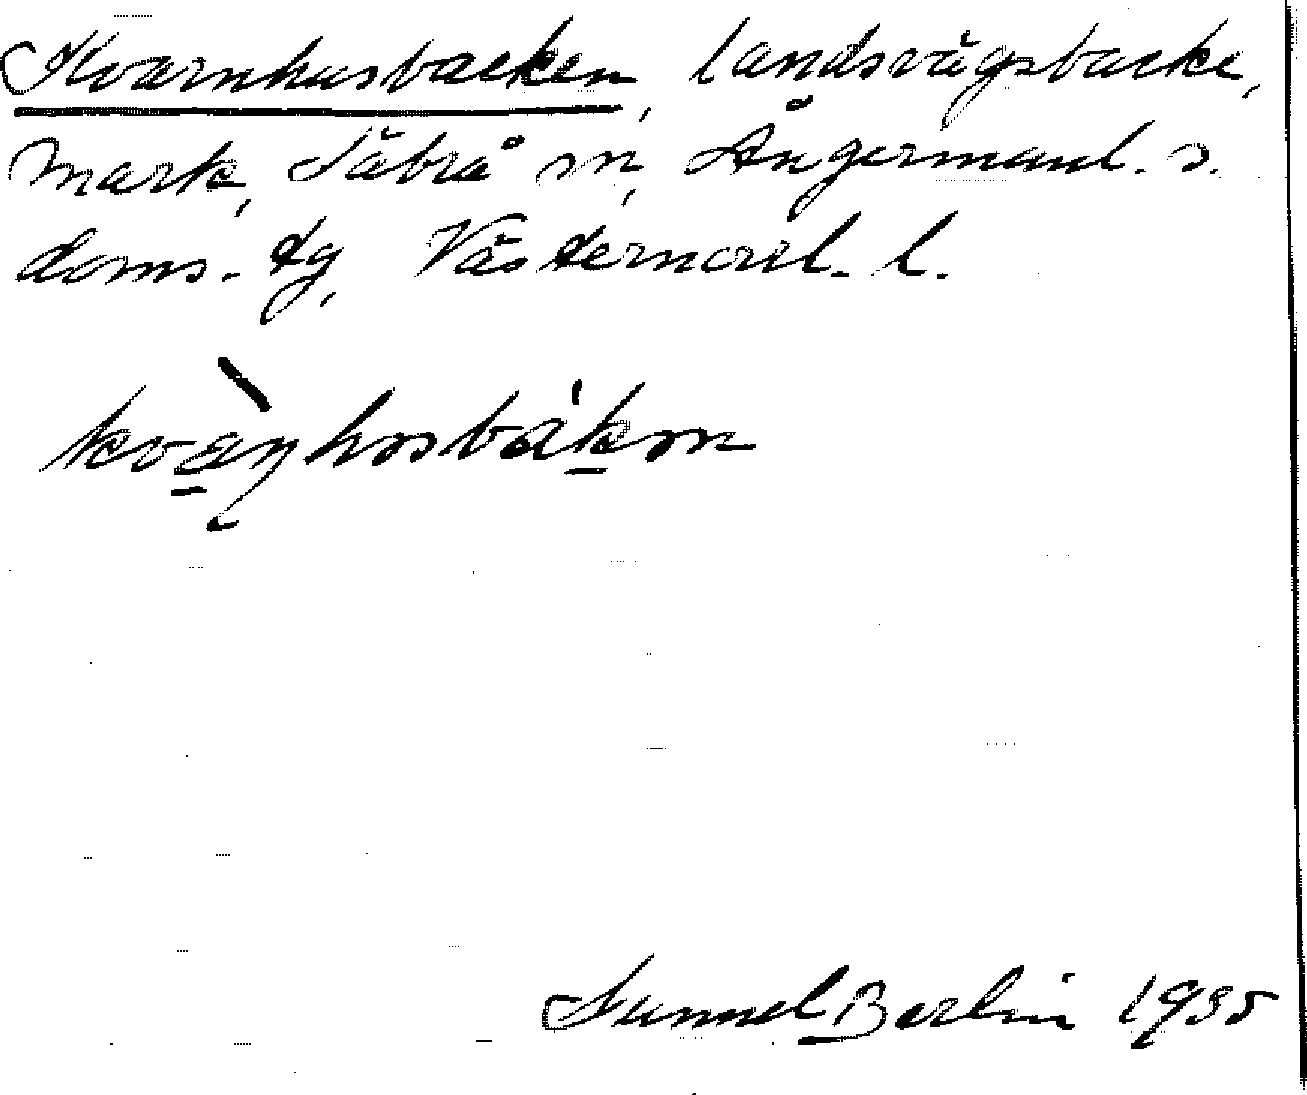 Kvarnhusbacken, landsvägsbacke,
Mark, Säbrå sn, Ångermanl. s.
doms. tg, Västernorrl. l.
Gunnel Berlin 1935